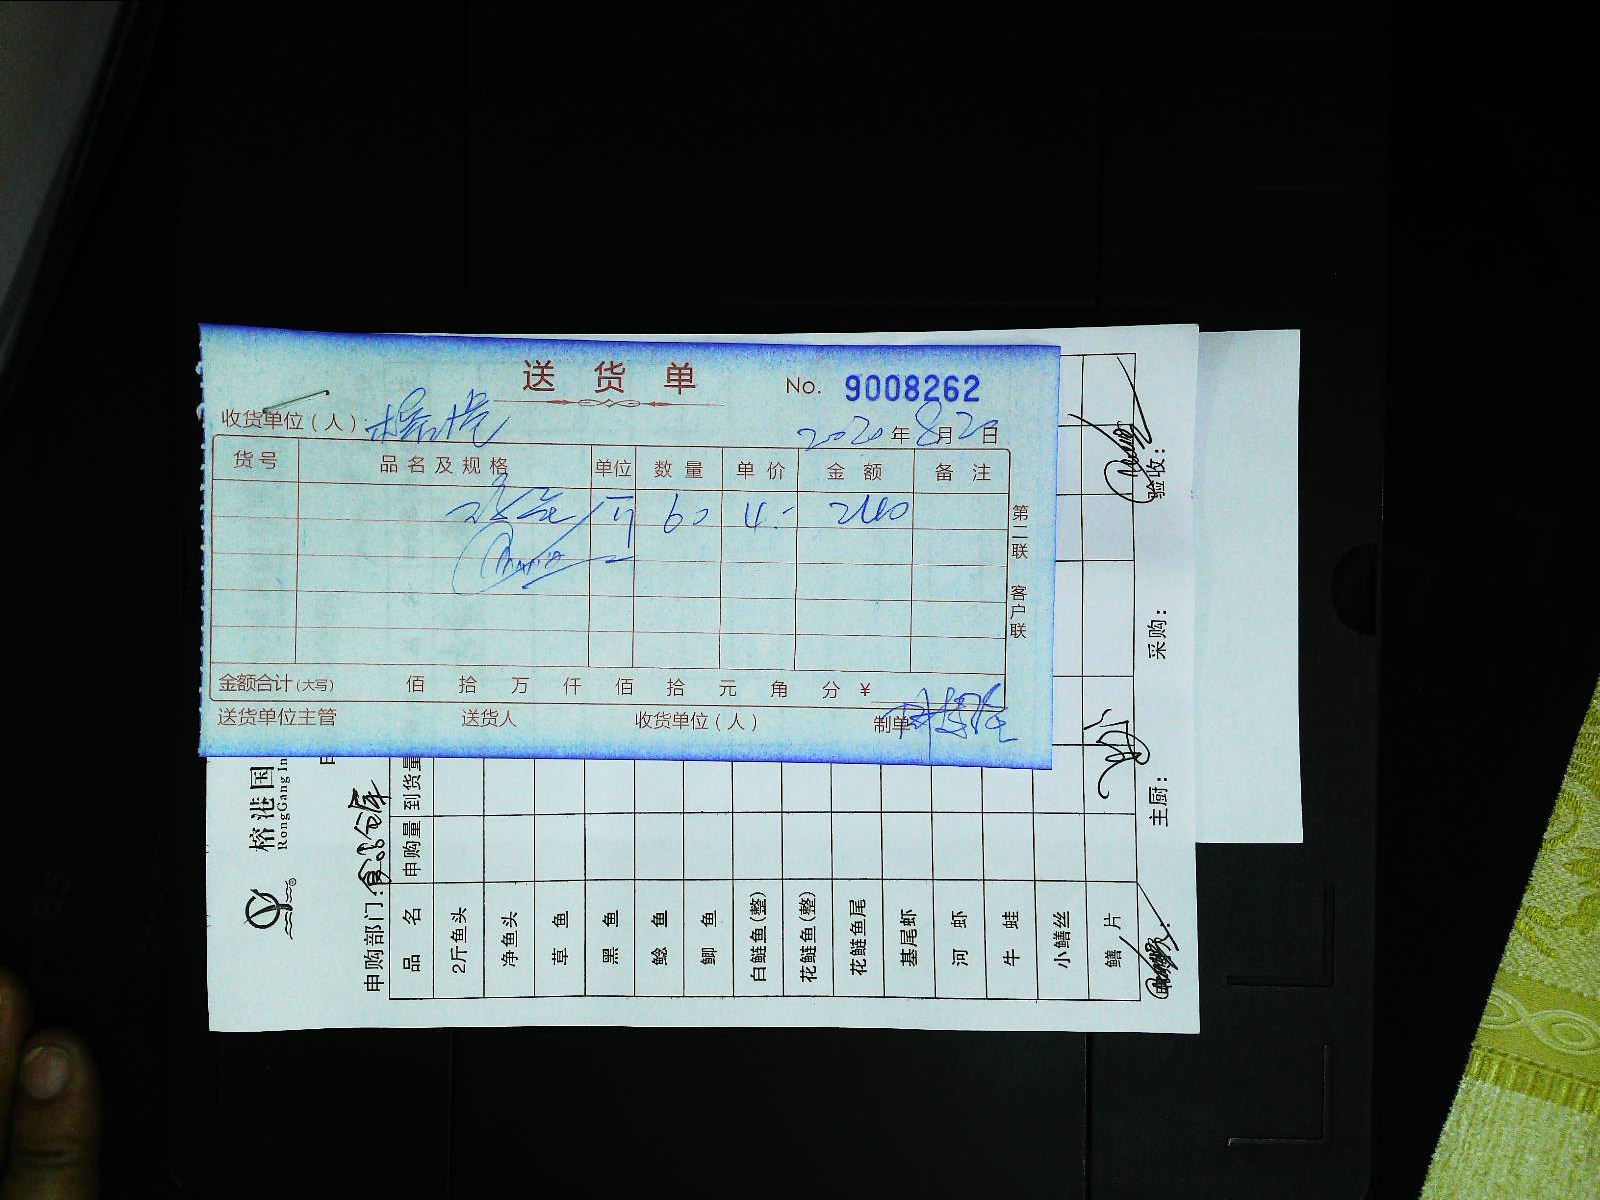 送货单
No. 9008262
收货单位(人)
2020年8月20日
货号 品名及规格 单位 数量 单价 金额 备注
60 4.- 240
第二联 客户联
金额合计(大写) 佰 拾 万 仟 佰 拾 元 角 分 ¥
送货单位主管 送货人 收货单位(人) 制单
榕港国
RongGang In
申购部门:
品名 申购量 到货量
2斤鱼头
净鱼头
草鱼
黑鱼
鲶鱼
鲫鱼
白鲢鱼(整)
花鲢鱼(整)
花鲢鱼尾
基尾虾
河虾
牛蛙
小鳝丝
鳝片
主厨: 采购: 验收: